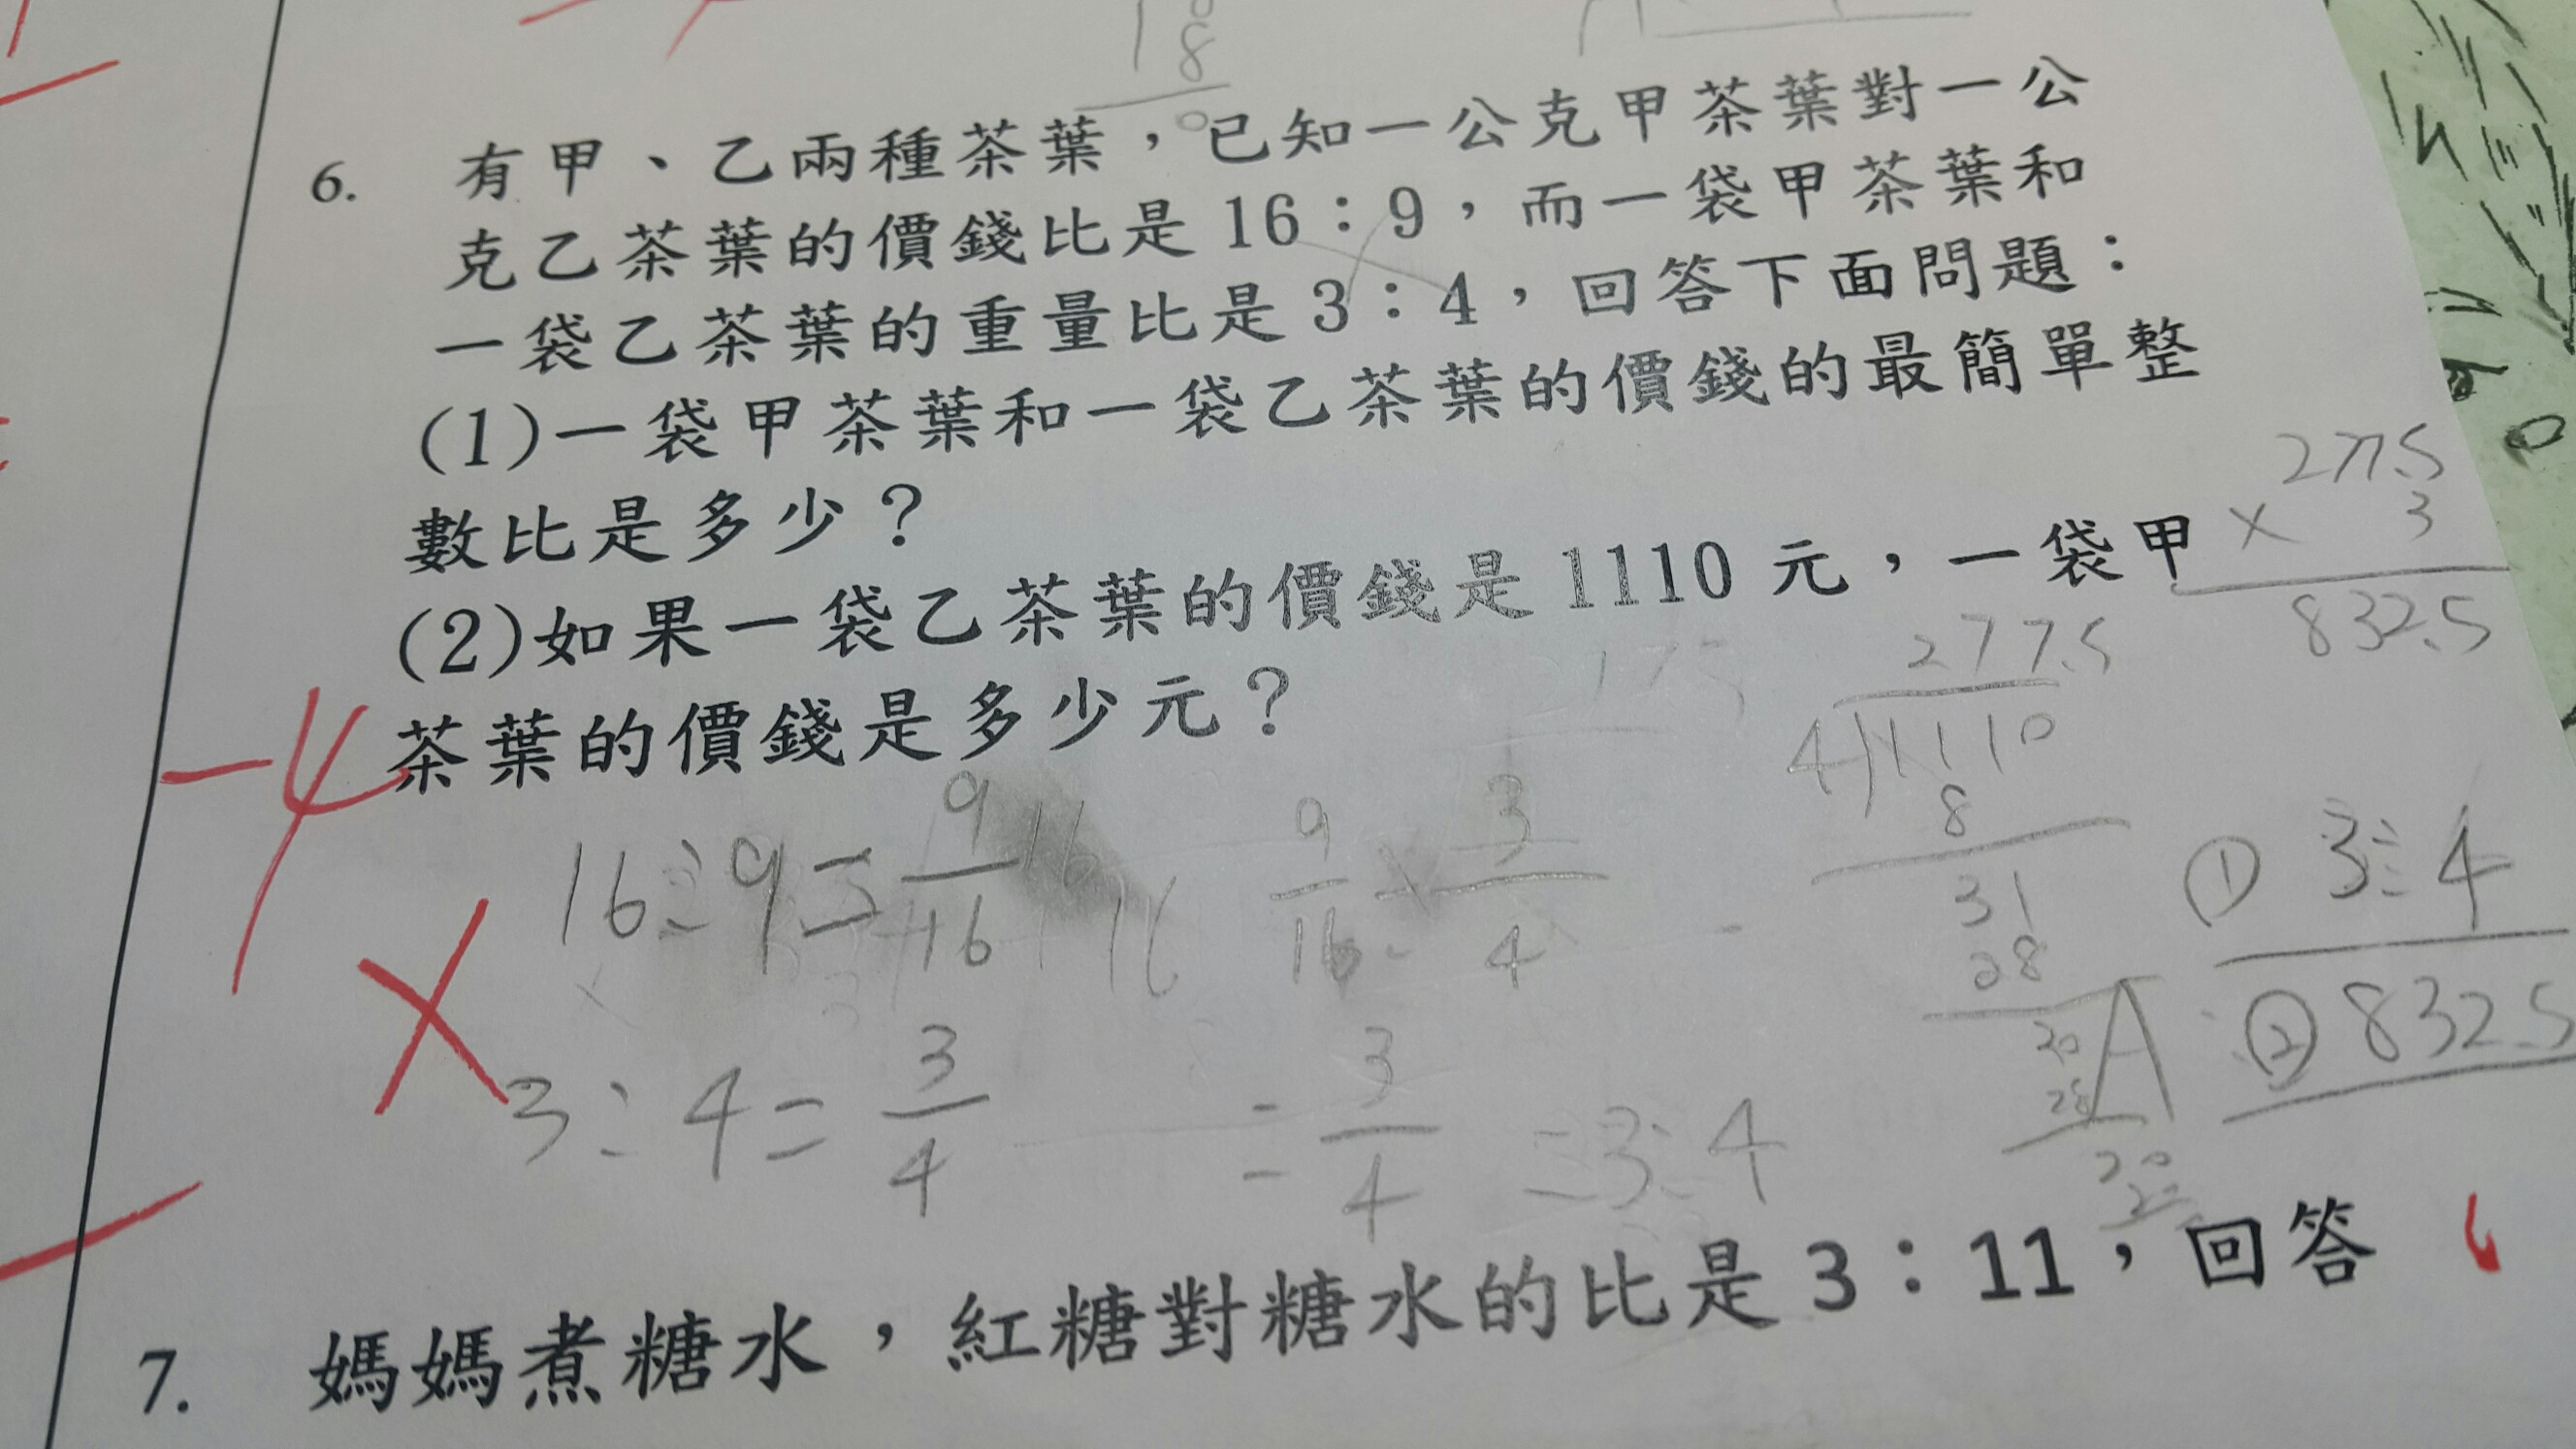 18
0
6. 有甲、乙兩種茶葉，已知一公克甲茶葉對一公
克乙茶葉的價錢比是16：9，而一袋甲茶葉和
一袋乙茶葉的重量比是3：4，回答下面問題：
(1)一袋甲茶葉和一袋乙茶葉的價錢的最簡單整
數比是多少？
(2)如果一袋乙茶葉的價錢是1110元，一袋甲
茶葉的價錢是多少元？
277.5
× 3
832.5
277.5
4)1110
8
31
28
30
28
20
-4
16÷9= 9/16
9/16 3/4
3:4= 3/4
= 3/4 =3:4
A
① 3:4
② 832.5
7. 媽媽煮糖水，紅糖對糖水的比是3：11，回答